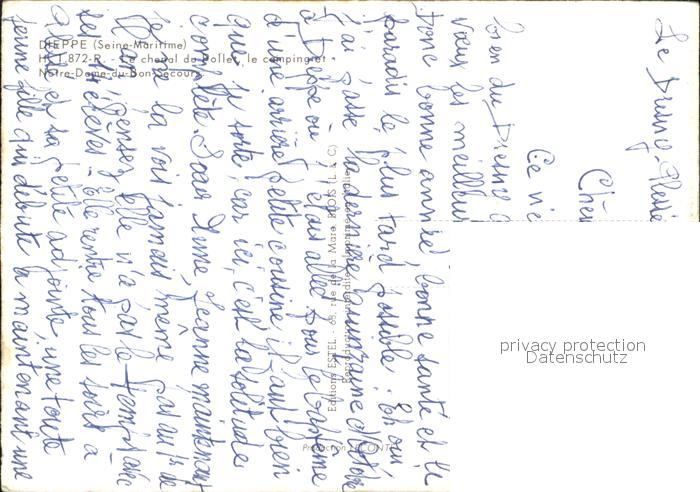 DIEPPE (Seine-Maritime)
H. 1.872-R. - Le chenal du Pollet, le camping et
Notre-Dame-du-Bon-Secours
Editions ESTEL - 69, rue de la Mare, BLOIS (L. & C)
Reproduction interdite
Production LECONTE
Le
Chè
Ce
bien du
vœux les meilleu
donc bonne année bonne santé et le
paradis le plus tard possible. Eh oui
j'ai passé la dernière quinzaine d'Octobre
à Dieppe où j'étais allée pour le baptême
d'une arrière petite cousine il faut bien
que je sorte, car ici, c'est la solitude
complète. Sœur Anne Jeanne maintenant
je ne la vois jamais, même pas au 1er de
l'an, pensez elle n'a pas le temps avec
ses élèves. Elle rentre tous les soirs à
et sa petite adjointe, une toute
jeune fille qui débute a maintenant une
privacy protection
Datenschutz